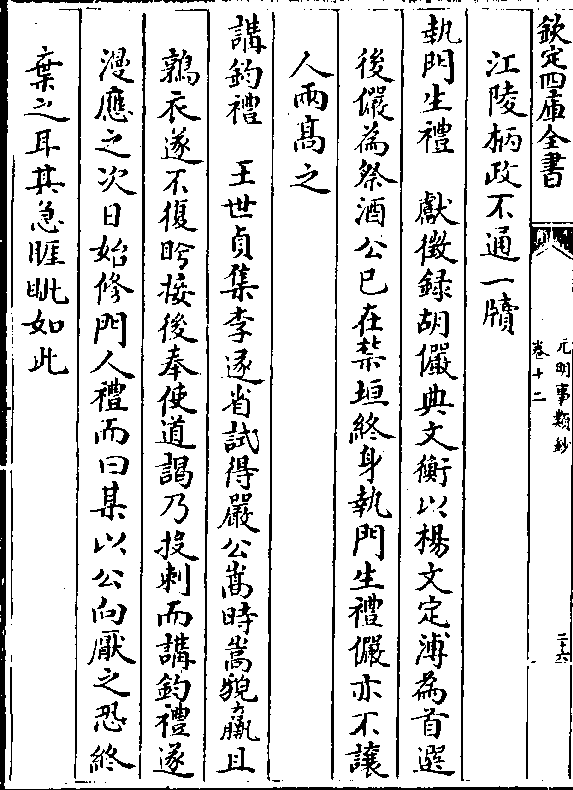 欽定四庫全書
元明事類鈔
卷十二
二十六
江陵柄政不通一牘
執門生禮　獻徵録胡儼典文衡以楊文定溥為首選
後儼為祭酒公已在禁垣終身執門生禮儼亦不讓
人兩髙之
講鈞禮　王世貞集李遂省試得嚴公嵩時嵩貌羸且
鶉衣遂不復盻接後奉使道謁乃投刺而講鈞禮遂
漫應之次日始修門人禮而曰某以公向厭之恐終
棄之耳其急睚眦如此